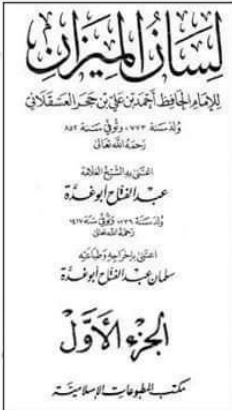 لسان الميزان
للإمام الحافظ أحمد بن علي بن حجر العسقلاني
ولد سنة ٧٧٣، وتوفي سنة ٨٥٢
رحمه الله تعالى
اعتنى به الشيخ العلامة
عبد الفتاح أبو غدة
ولد سنة ١٣٣٦ وتوفي سنة ١٤١٧
رحمه الله تعالى
اعتنى بإخراجه وطباعته
سلمان عبد الفتاح أبو غدة
الجزء الأول
مكتب المطبوعات الإسلامية